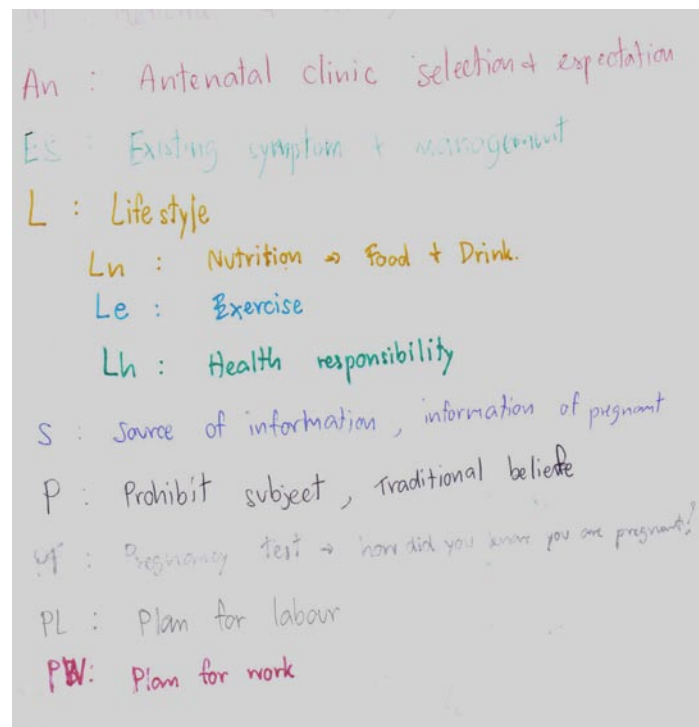 An : Antenatal clinic selection & expectation
ES : Existing symptom + management
L : Life style
Ln : Nutrition → Food + Drink.
Le : Exercise
Lh : Health responsibility
S : Source of information, information of pregnant
P : Prohibit subject, Traditional beliefe
: Pregnancy test → how did you know you are pregnant?
PL : Plan for labour
PW: Plan for work